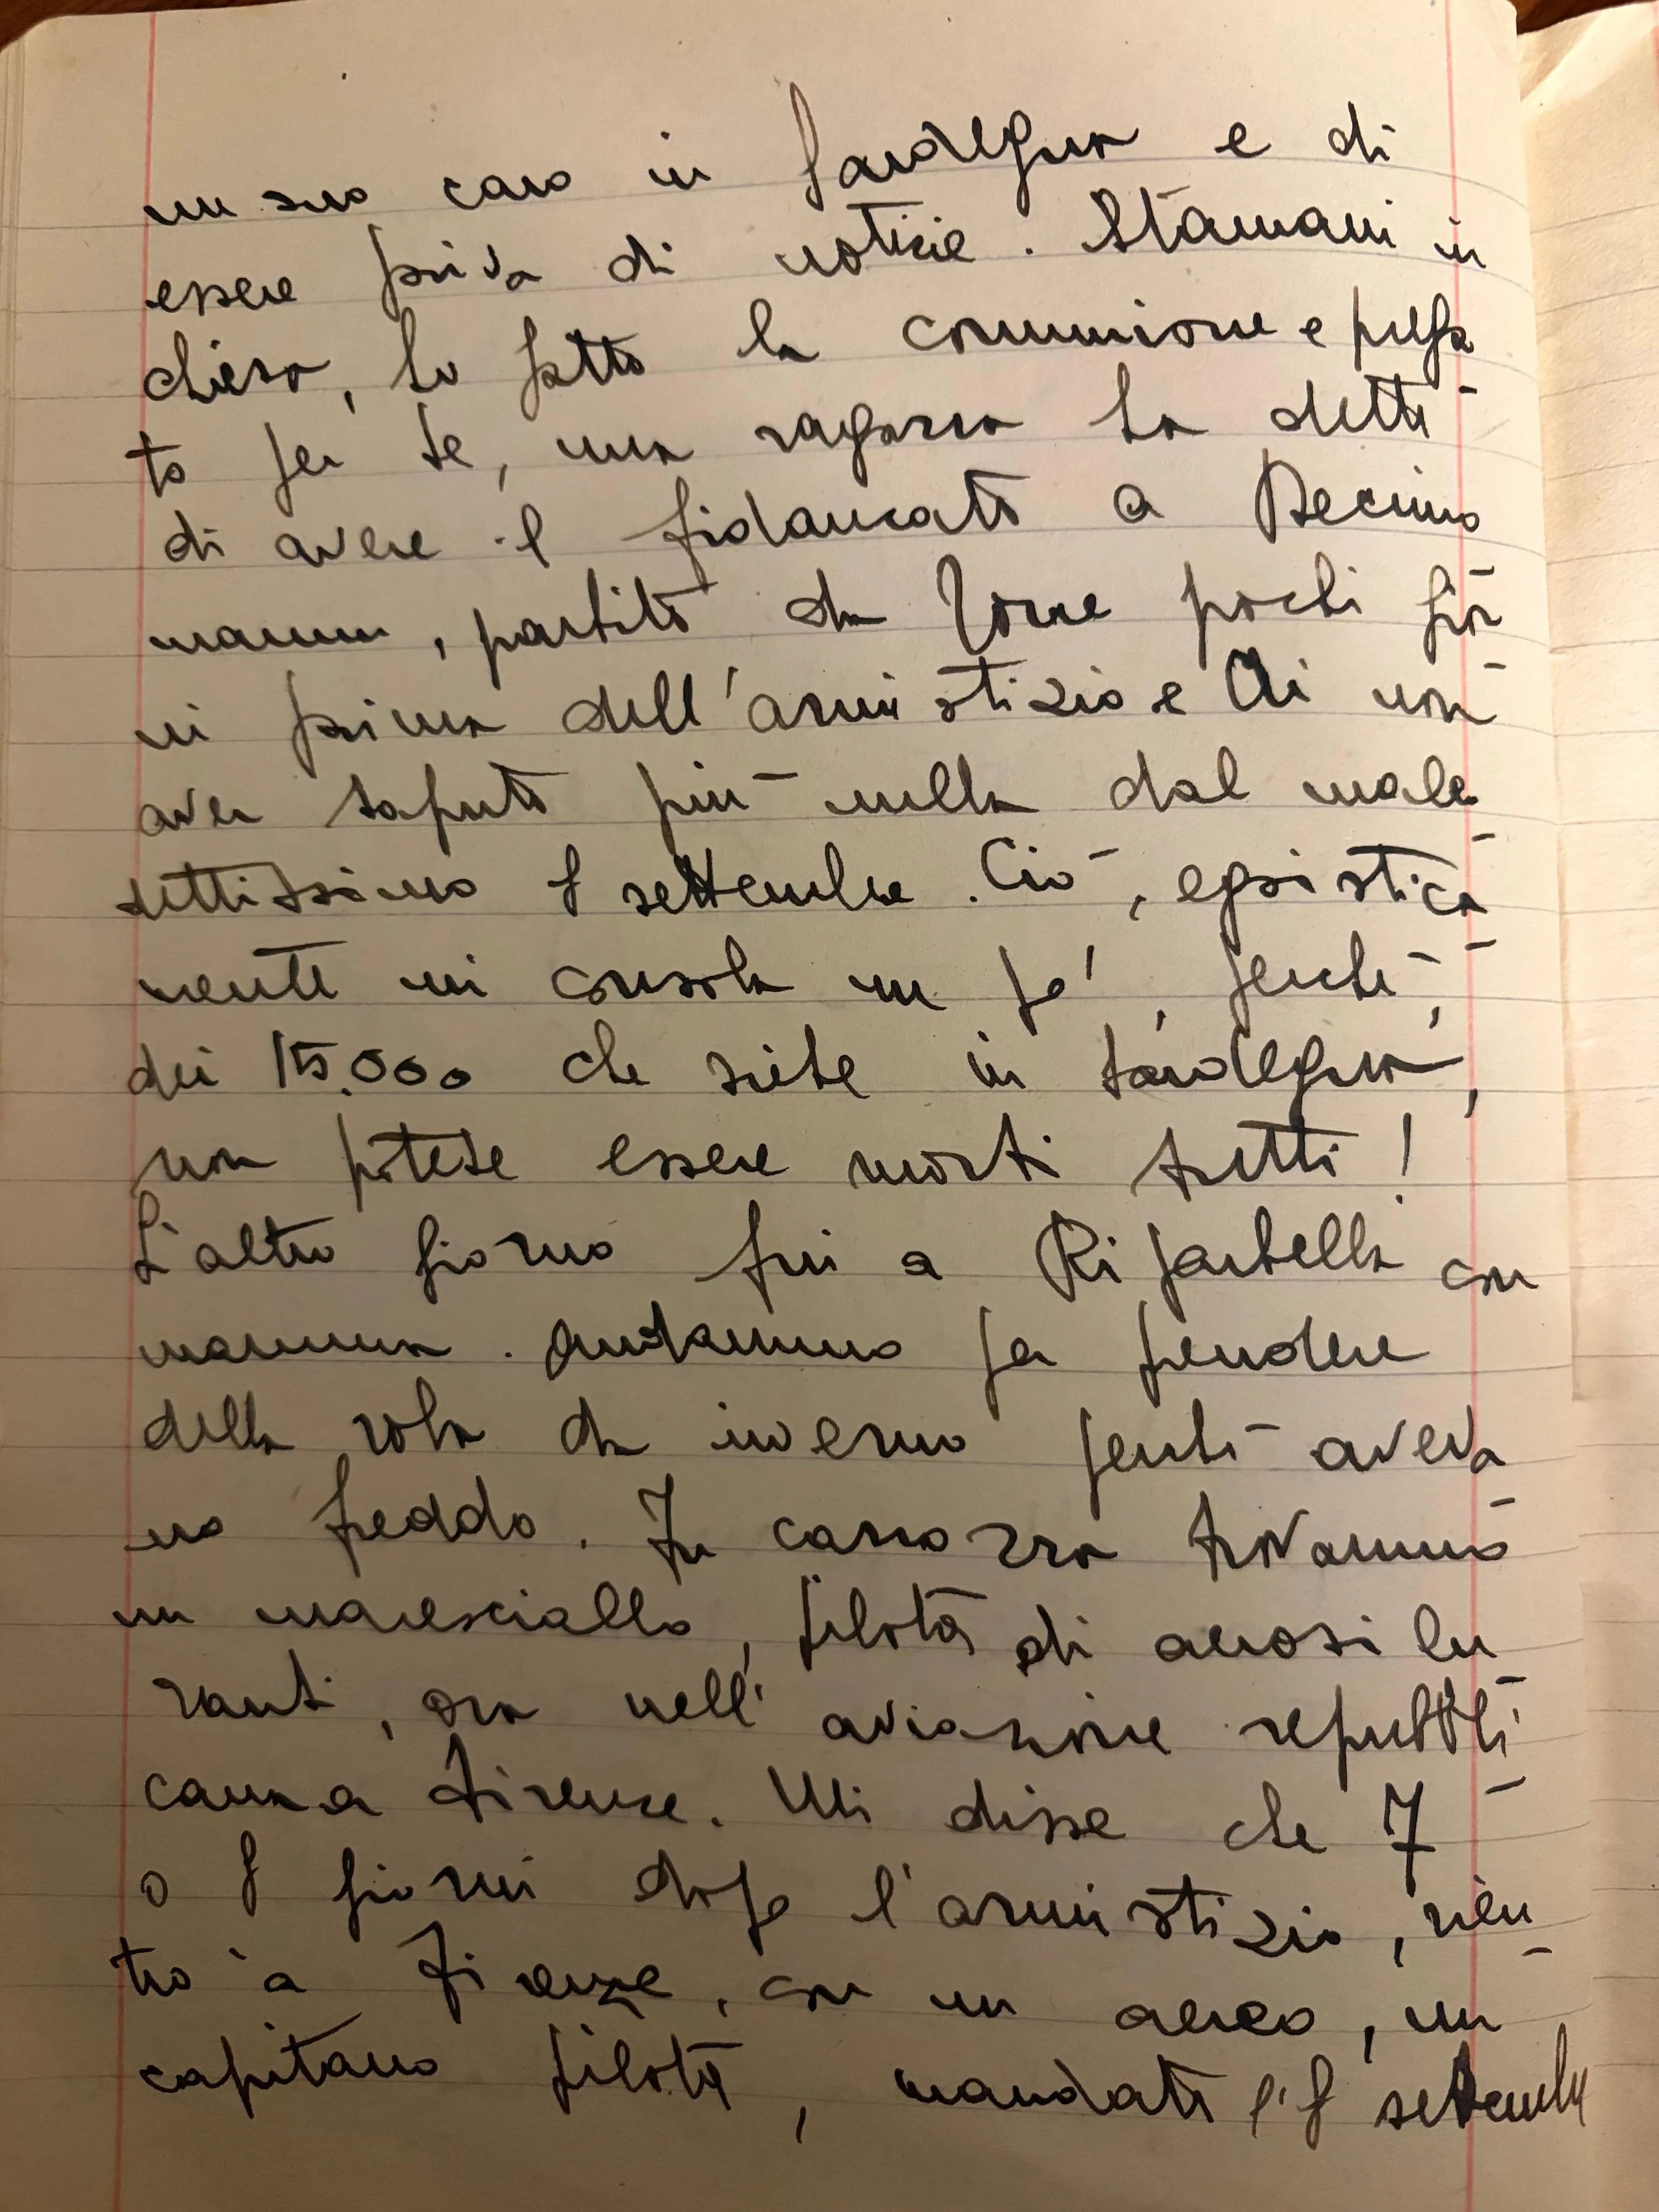 un suo caro in Sardegna e di
essere priva di notizie. Stamani in
chiesa, ho fatto la comunione e prega
to per te, una ragazza ha detto
di avere il fidanzato a Decimo
mannu, partito da Torre pochi gior
ni prima dell'armistizio e di non
aver saputo più nulla dal male
dettissimo 8 settembre. Ciò, egoistica
mente mi consola un po', perchè,
dei 15.000 che siete in Sardegna,
non potete essere morti tutti!
L'altro giorno fui a Riparbella con
mamma. Andammo per prendere
della roba da inverno perchè aveva
no freddo. In carrozza trovammo
un maresciallo, pilota di aerosilu
ranti, ora nell'aviazione repubbli
cana a Firenze. Mi disse che 7
o 8 giorni dopo l'armistizio, rien
trò a Firenze, con un aereo, un
capitano pilota, mandato l'8 settembre